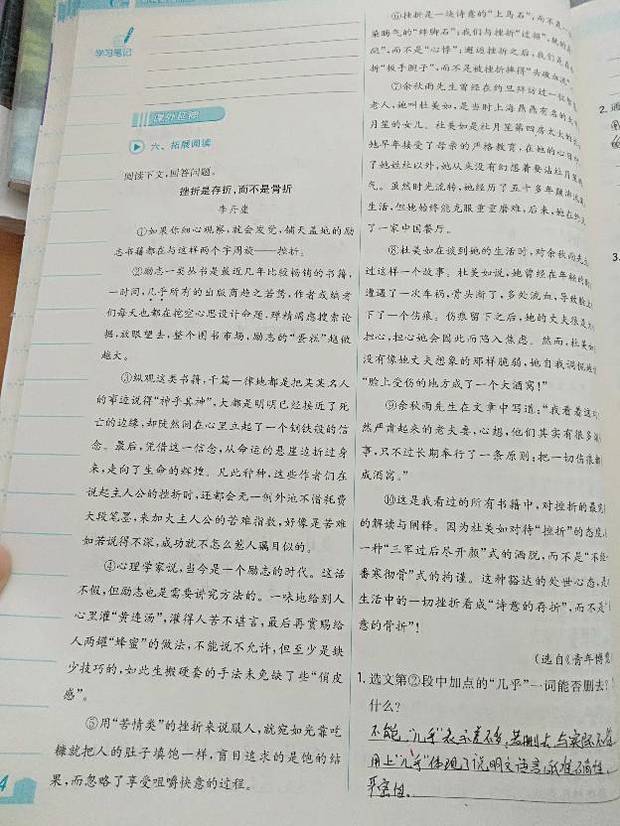 学习笔记
课外延伸
六、拓展阅读
阅读下文,回答问题。
挫折是存折,而不是骨折
李丹崖
①如果你细心观察,就会发觉,铺天盖地的励
志书籍都在与这样两个字周旋——挫折。
②励志一类丛书是最近几年比较畅销的书籍,
一时间,几乎所有的出版商趋之若鹜,作者或编者
们每天也都在挖空心思设计命题,殚精竭虑搜索论
据,放眼望去,整个图书市场,励志的“蛋糕”越做
越大。
③纵观这类书籍,千篇一律地都是把某某名人
的事迹说得“神乎其神”,大都是明明已经接近了死
亡的边缘,却陡然间在心里立起了一个钢铁般的信
念。最后,凭借这一信念,从命运的悬崖边折过身
来,走向了生命的辉煌。凡此种种,这些作者们在
说起主人公的挫折时,还都会无一例外地不惜耗费
大段笔墨,来加大主人公的苦难指数,好像是苦难
如若说得不深,成功就不怎么惹人瞩目似的。
④心理学家说,当今是一个励志的时代。这话
不假,但励志也是需要讲究方法的。一味地给别人
心里灌“黄连汤”,灌得人苦不堪言,最后再赏赐给
人两罐“蜂蜜”的做法,不能说不允许,但至少是缺
少技巧的,如此生搬硬套的手法未免缺了些“俏皮
感”。
⑤用“苦情类”的挫折来说服人,就宛如光靠吃
糠就把人的肚子填饱一样,盲目追求的是饱的结
果,而忽略了享受咀嚼快意的过程。
4
⑥挫折是一块诗意的“上马石”,而不是
气的“绊脚石”;我们与挫折“过招”,
而不是“心悸”;邂逅挫折之后,我们
折“扳手腕子”,而不是被挫折摔得“头破血流”
⑦余秋雨先生曾经在约旦拜访过一位
老人,她叫杜美如,是当时上海鼎鼎有名的
月笙的女儿。杜美如是杜月笙第四房太太的
她早年接受了母亲的严格教育,在她的心目
了她姓杜以外,她从来没有幻想着要沾杜月笙
气。虽然时光流转,她经历了五十多年颠沛流
生活,但她始终能克服重重磨难,后来,她在
了一家中国餐厅。
⑧杜美如在谈到她的生活时,对余秋雨先
过这样一个故事。杜美如说,她曾经在年轻的
遭遇了一次车祸,骨头断了,多处流血,导致脸
下了一个伤痕。伤痕留下之后,她的丈夫很是
担心,担心她会因此而陷入焦虑。然而,杜美如
没有像她丈夫想象的那样脆弱,她自我调侃
“脸上受伤的地方成了一个大酒窝!”
⑨余秋雨先生在文章中写道:“我看着这
然严肃起来的老夫妻,心想,他们其实有很多
事,只不过长期奉行了一条原则:把一切伤痕
成酒窝。”
⑩这是我看过的所有书籍中,对挫折的最
的解读与阐释。因为杜美如对待“挫折”的态度
一种“三军过后尽开颜”式的洒脱,而不是“不经
番寒彻骨”式的拘谨。这种豁达的处世心态,是
生活中的一切挫折看成“诗意的存折”,而不是
意的骨折”!
(选自《青年博览
1.选文第②段中加点的“几乎”一词能否删去?
什么?
不能,“几乎”表示差不多,若删去,与实际不符
用上“几乎”体现了说明文语言的准确性,
严密性。
2.
3.